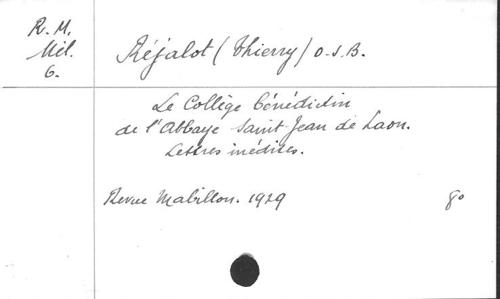 R. M.
Mél.
6.
Réjalot (Thierry) O.S.B.
Le Collège Bénédictin
de l'Abbaye Saint Jean de Laon.
Lettres inédites.
Revue Mabillon. 1929
8o